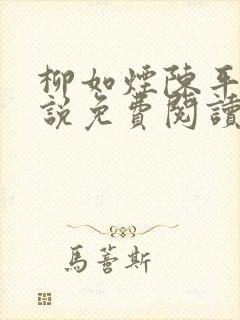 柳如煙陳平
說免費閱讀
馬蓍斯